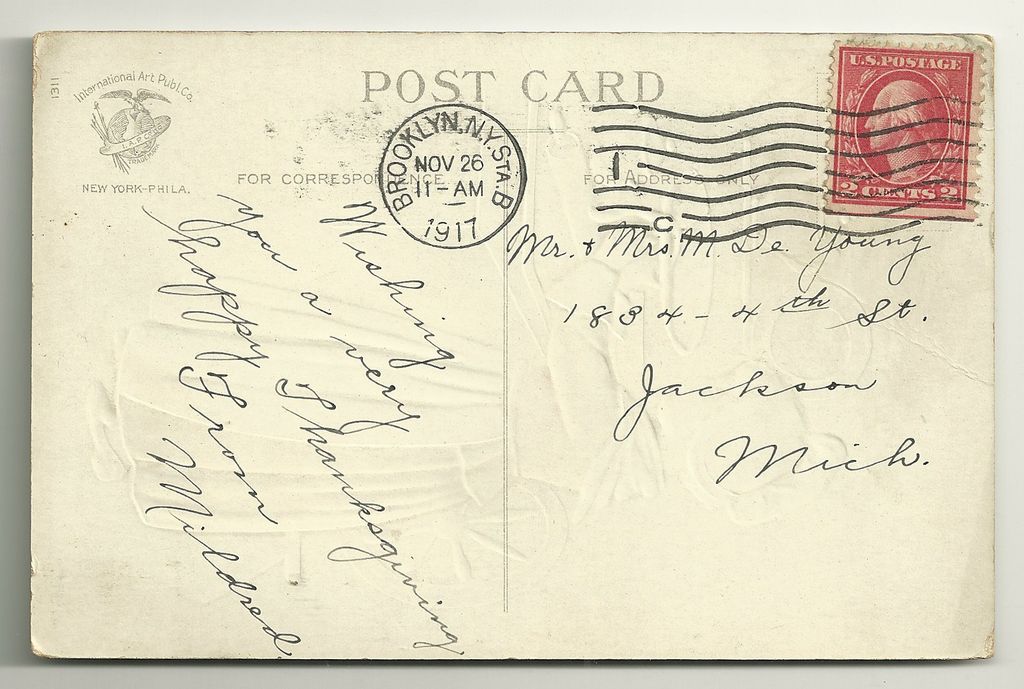 1311
International Art Publ. Co.
I.A.P.CO.
TRADE MARK
NEW YORK-PHILA.
POST CARD
FOR CORRESPONDENCE
FOR ADDRESS ONLY
BROOKLYN, N.Y. STA. B
NOV 26
11-AM
1917
1
C
U.S. POSTAGE
2 CENTS 2
Wishing
you a very
happy Thanksgiving
From
Mildred
Mr. + Mrs. M. De Young
1834 - 4th St.
Jackson
Mich.